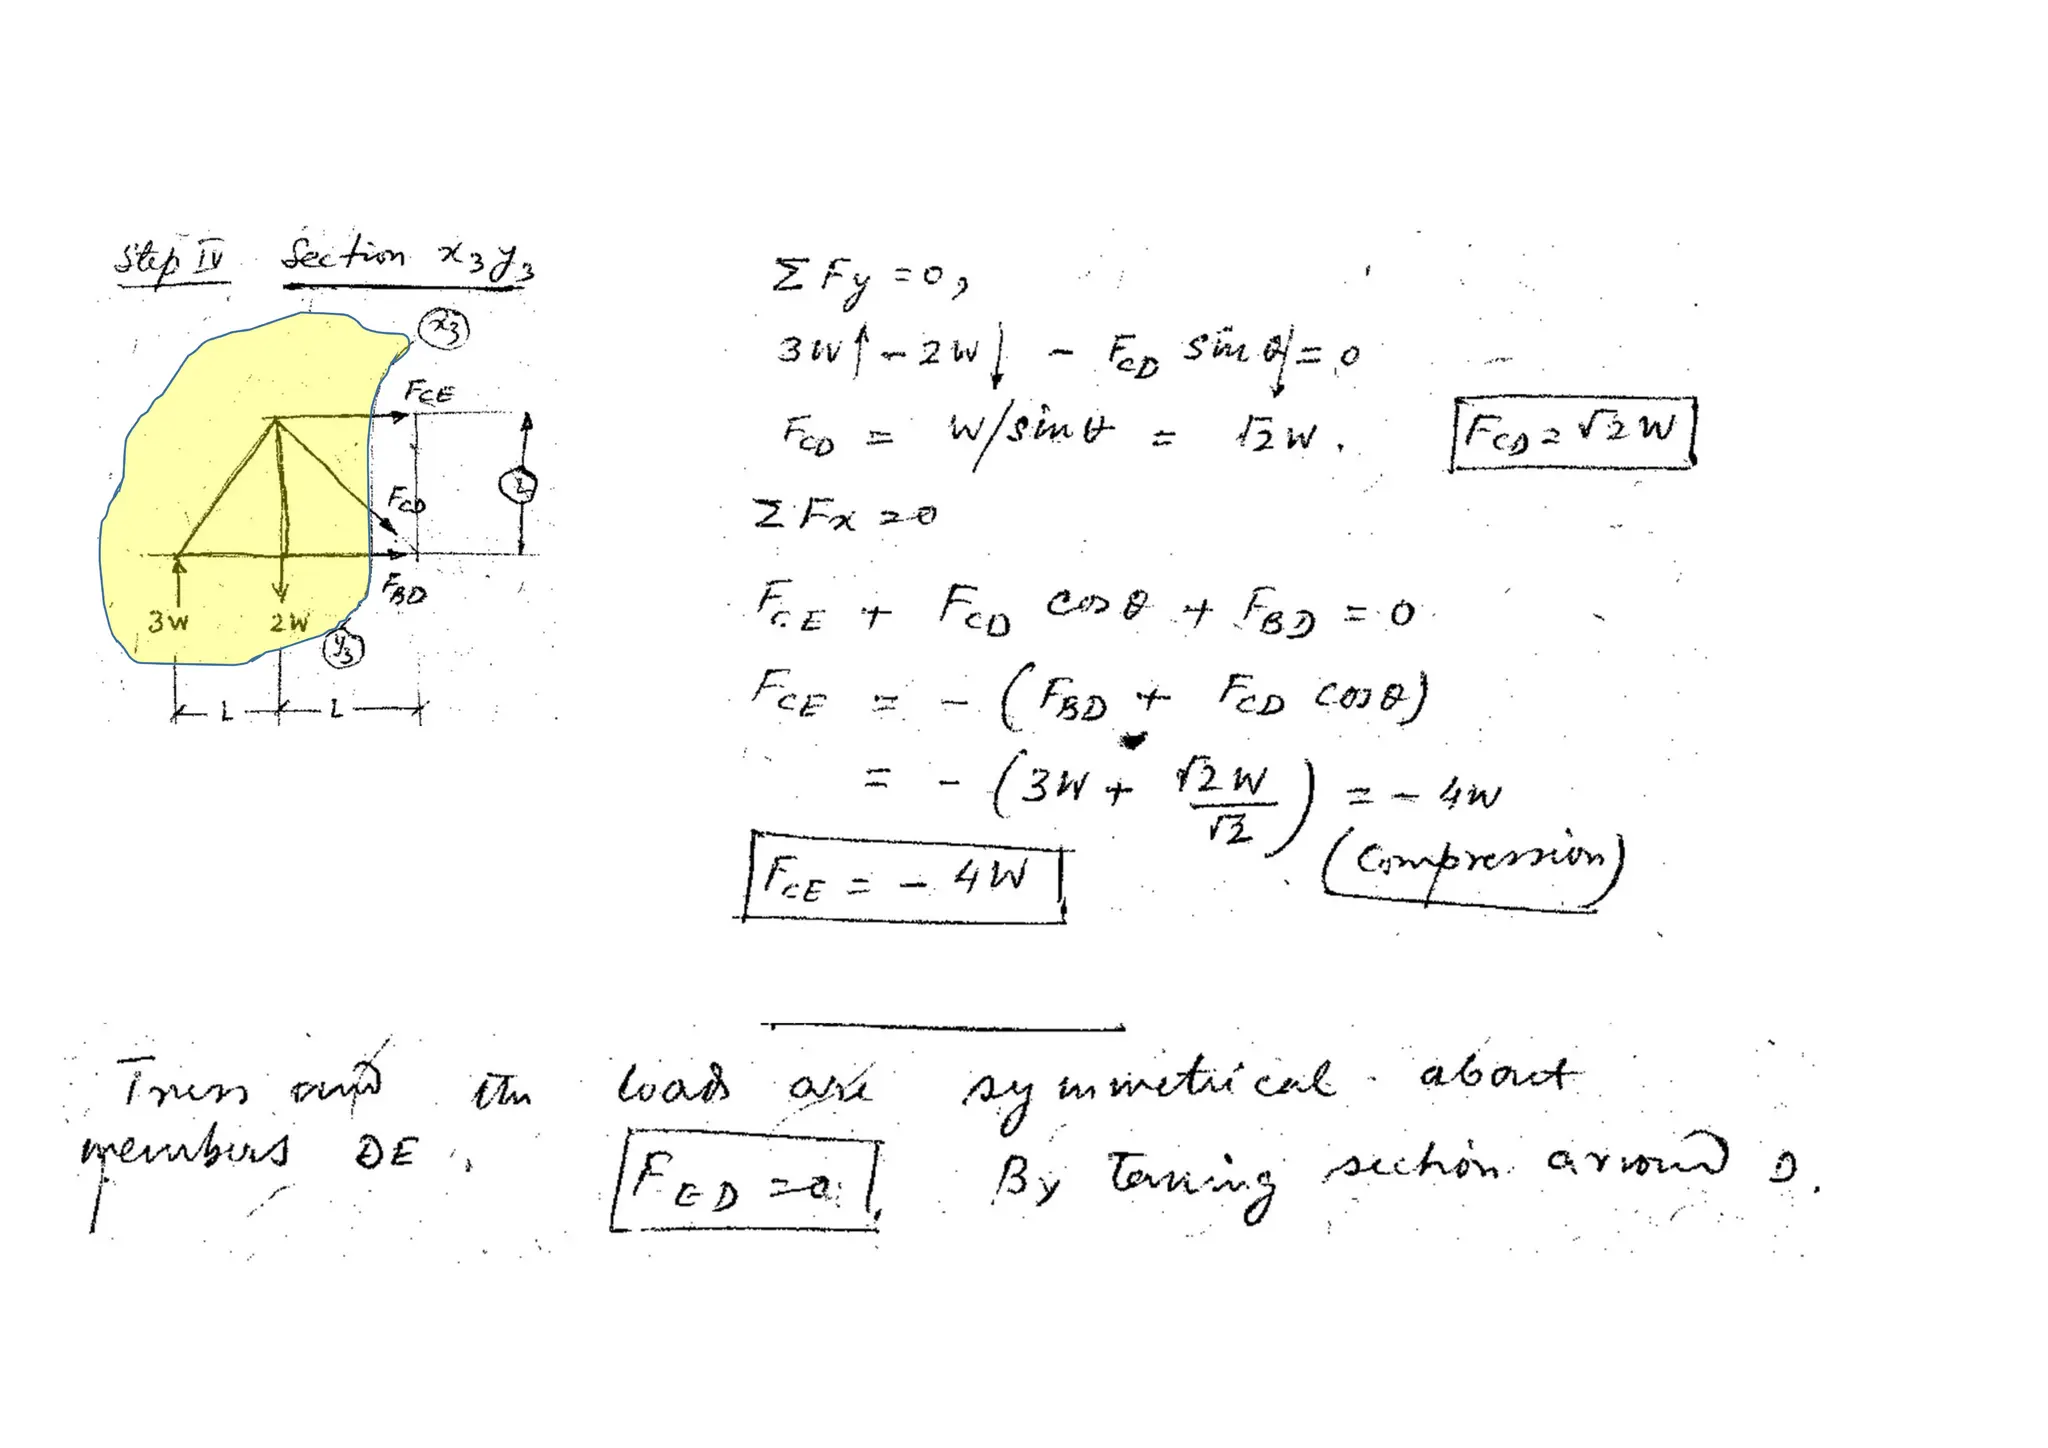 Step IV Section x3y3
x3
FCE
FCD
L
FBD
3W
2W
y3
L
L
ΣFy = 0,
3W↑ - 2W↓ - FCD sinθ↓ = 0
FCD = W/sinθ = √2W.
FCD = √2W
ΣFx = 0
FCE + FCD cosθ + FBD = 0
FCE = - (FBD + FCD cosθ)
= - (3W + √2W/√2) = - 4W
(Compression)
FCE = - 4W
Truss and the loads are symmetrical about
members DE, FED = 0. By Taking section around D.